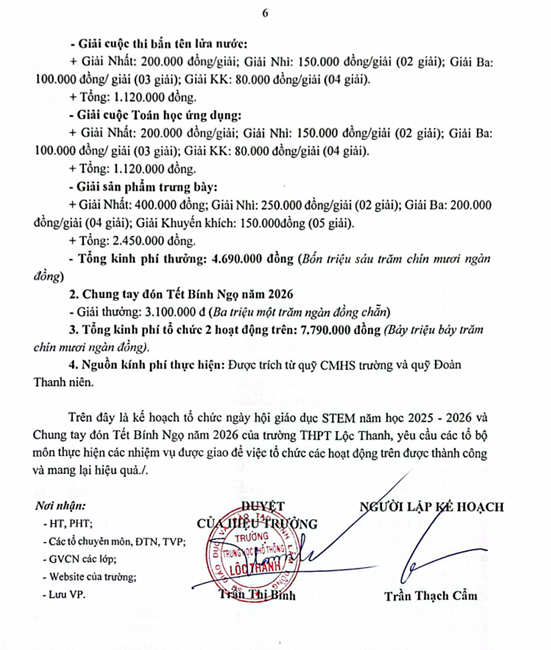 6
- Giải cuộc thi bắn tên lửa nước:
+ Giải Nhất: 200.000 đồng/giải; Giải Nhì: 150.000 đồng/giải (02 giải); Giải Ba:
100.000 đồng/ giải (03 giải); Giải KK: 80.000 đồng/giải (04 giải).
+ Tổng: 1.120.000 đồng.
- Giải cuộc Toán học ứng dụng:
+ Giải Nhất: 200.000 đồng/giải; Giải Nhì: 150.000 đồng/giải (02 giải); Giải Ba:
100.000 đồng/ giải (03 giải); Giải KK: 80.000 đồng/giải (04 giải).
+ Tổng: 1.120.000 đồng.
- Giải sản phẩm trưng bày:
+ Giải Nhất: 400.000 đồng; Giải Nhì: 250.000 đồng/giải (02 giải); Giải Ba: 200.000
đồng/giải (04 giải); Giải Khuyến khích: 150.000đồng (05 giải).
+ Tổng: 2.450.000 đồng.
- Tổng kinh phí thưởng: 4.690.000 đồng (Bốn triệu sáu trăm chín mươi ngàn
đồng)
2. Chung tay đón Tết Bính Ngọ năm 2026
- Giải thưởng: 3.100.000 đ (Ba triệu một trăm ngàn đồng chẵn)
3. Tổng kinh phí tổ chức 2 hoạt động trên: 7.790.000 đồng (Bảy triệu bảy trăm
chín mươi ngàn đồng).
4. Nguồn kính phí thực hiện: Được trích từ quỹ CMHS trường và quỹ Đoàn
Thanh niên.
Trên đây là kế hoạch tổ chức ngày hội giáo dục STEM năm học 2025 - 2026 và
Chung tay đón Tết Bính Ngọ năm 2026 của trường THPT Lộc Thanh, yêu cầu các tổ bộ
môn thực hiện các nhiệm vụ được giao để việc tổ chức các hoạt động trên được thành công
và mang lại hiệu quả./.
Nơi nhận:
- HT, PHT;
- Các tổ chuyên môn, ĐTN, TVP;
- GVCN các lớp;
- Website của trường;
- Lưu VP.
DUYỆT
CỦA HIỆU TRƯỞNG
TRƯỜNG
TRUNG HỌC PHỔ THÔNG
LỘC THANH
Trần Thị Bính
NGƯỜI LẬP KẾ HOẠCH
Trần Thạch Cẩm